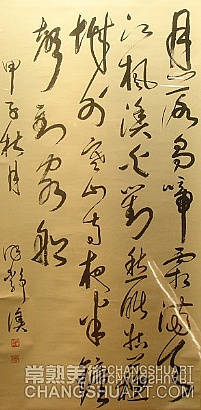 月落烏啼霜滿天
江楓漁火對愁眠姑蘇
城外寒山寺夜半鐘
聲到客船
甲子秋月
常熟美术 CHANGSHUART
CHANGSHUART.COM